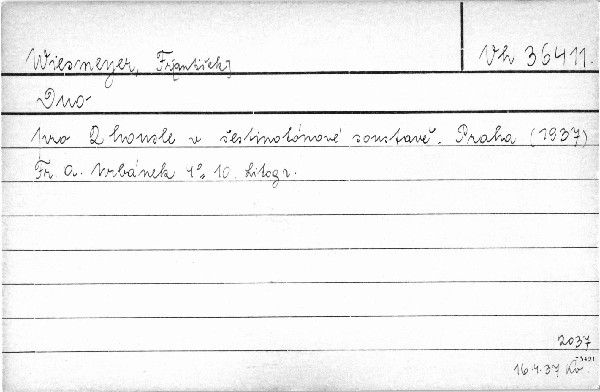 Wiesmeyer, Fr[antišek] Vh 36411.
Duo
pro 2 housle v šestinotónové soustavě. Praha (1937)
Fr. A. Urbánek 4° 10. Litogr.
2037
16.4.37